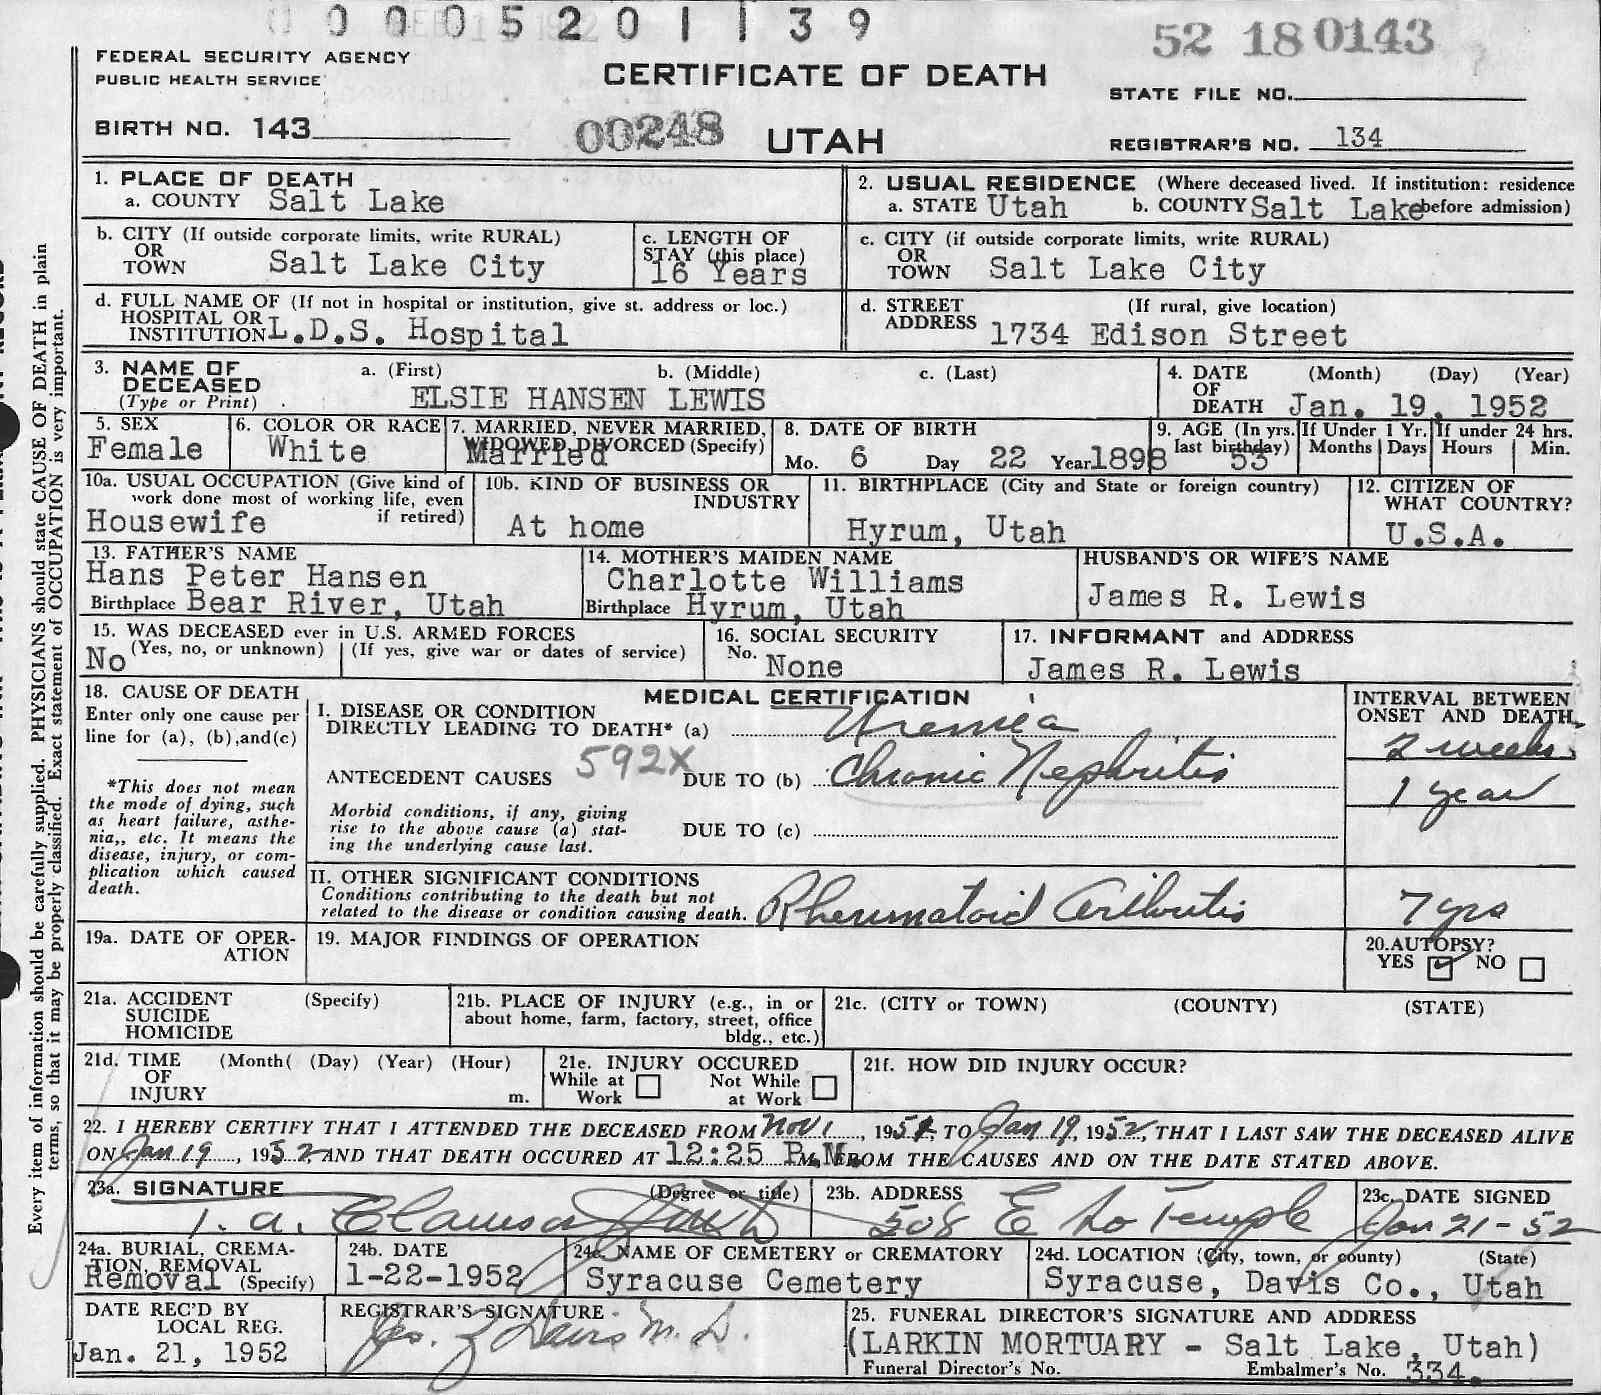 0 0 0 5 2 0 1 1 3 9
52 18 0143
FEDERAL SECURITY AGENCY
PUBLIC HEALTH SERVICE
CERTIFICATE OF DEATH
STATE FILE NO.
BIRTH NO. 143
00248
UTAH
REGISTRAR'S NO. 134
1. PLACE OF DEATH
a. COUNTY Salt Lake
2. USUAL RESIDENCE (Where deceased lived. If institution: residence
a. STATE Utah b. COUNTY Salt Lake before admission)
b. CITY (If outside corporate limits, write RURAL)
OR
TOWN Salt Lake City
c. LENGTH OF
STAY (this place)
16 Years
c. CITY (if outside corporate limits, write RURAL)
OR
TOWN Salt Lake City
d. FULL NAME OF (If not in hospital or institution, give st. address or loc.)
HOSPITAL OR
INSTITUTION L.D.S. Hospital
d. STREET (If rural, give location)
ADDRESS 1734 Edison Street
3. NAME OF a. (First) b. (Middle) c. (Last)
DECEASED
(Type or Print) ELSIE HANSEN LEWIS
4. DATE (Month) (Day) (Year)
OF
DEATH Jan. 19, 1952
5. SEX
Female
6. COLOR OR RACE
White
7. MARRIED, NEVER MARRIED,
WIDOWED, DIVORCED (Specify)
Married
8. DATE OF BIRTH
Mo. 6 Day 22 Year 1898
9. AGE (In yrs.
last birthday)
53
If Under 1 Yr.
Months Days
If under 24 hrs.
Hours Min.
10a. USUAL OCCUPATION (Give kind of
work done most of working life, even
if retired)
Housewife
10b. KIND OF BUSINESS OR
INDUSTRY
At home
11. BIRTHPLACE (City and State or foreign country)
Hyrum, Utah
12. CITIZEN OF
WHAT COUNTRY?
U.S.A.
13. FATHER'S NAME
Hans Peter Hansen
Birthplace Bear River, Utah
14. MOTHER'S MAIDEN NAME
Charlotte Williams
Birthplace Hyrum, Utah
HUSBAND'S OR WIFE'S NAME
James R. Lewis
15. WAS DECEASED ever in U.S. ARMED FORCES
(Yes, no, or unknown) (If yes, give war or dates of service)
No
16. SOCIAL SECURITY
No. None
17. INFORMANT and ADDRESS
James R. Lewis
18. CAUSE OF DEATH
Enter only one cause per
line for (a), (b),and(c)
*This does not mean
the mode of dying, such
as heart failure, asthe-
nia,, etc. It means the
disease, injury, or com-
plication which caused
death.
MEDICAL CERTIFICATION
I. DISEASE OR CONDITION
DIRECTLY LEADING TO DEATH* (a) Uremia
592X
ANTECEDENT CAUSES DUE TO (b) Chronic Nephritis
Morbid conditions, if any, giving
rise to the above cause (a) stat-
ing the underlying cause last.
DUE TO (c)
INTERVAL BETWEEN
ONSET AND DEATH
2 weeks
1 year
II. OTHER SIGNIFICANT CONDITIONS
Conditions contributing to the death but not
related to the disease or condition causing death. Rheumatoid Arthritis
7 yrs
19a. DATE OF OPER-
ATION
19. MAJOR FINDINGS OF OPERATION
20. AUTOPSY?
YES NO
21a. ACCIDENT (Specify)
SUICIDE
HOMICIDE
21b. PLACE OF INJURY (e.g., in or
about home, farm, factory, street, office
bldg., etc.)
21c. (CITY or TOWN) (COUNTY) (STATE)
21d. TIME (Month( (Day) (Year) (Hour)
OF
INJURY m.
21e. INJURY OCCURED
While at Work Not While at Work
21f. HOW DID INJURY OCCUR?
22. I HEREBY CERTIFY THAT I ATTENDED THE DECEASED FROM Nov 1, 1951, TO Jan 19, 1952, THAT I LAST SAW THE DECEASED ALIVE
ON Jan 19, 1952, AND THAT DEATH OCCURED AT 12:25 P.M. FROM THE CAUSES AND ON THE DATE STATED ABOVE.
23a. SIGNATURE (Degree or title)
23b. ADDRESS
508 E So Temple
23c. DATE SIGNED
Jan 21-52
24a. BURIAL, CREMA-
TION, REMOVAL
Removal (Specify)
24b. DATE
1-22-1952
24c. NAME OF CEMETERY or CREMATORY
Syracuse Cemetery
24d. LOCATION (City, town, or county) (State)
Syracuse, Davis Co., Utah
DATE REC'D BY
LOCAL REG.
Jan. 21, 1952
REGISTRAR'S SIGNATURE
M.D.
25. FUNERAL DIRECTOR'S SIGNATURE AND ADDRESS
(LARKIN MORTUARY - Salt Lake, Utah)
Funeral Director's No. Embalmer's No. 334.
Every item of information should be carefully supplied. PHYSICIANS should state CAUSE OF DEATH in plain
terms, so that it may be properly classified. Exact statement of OCCUPATION is very important.